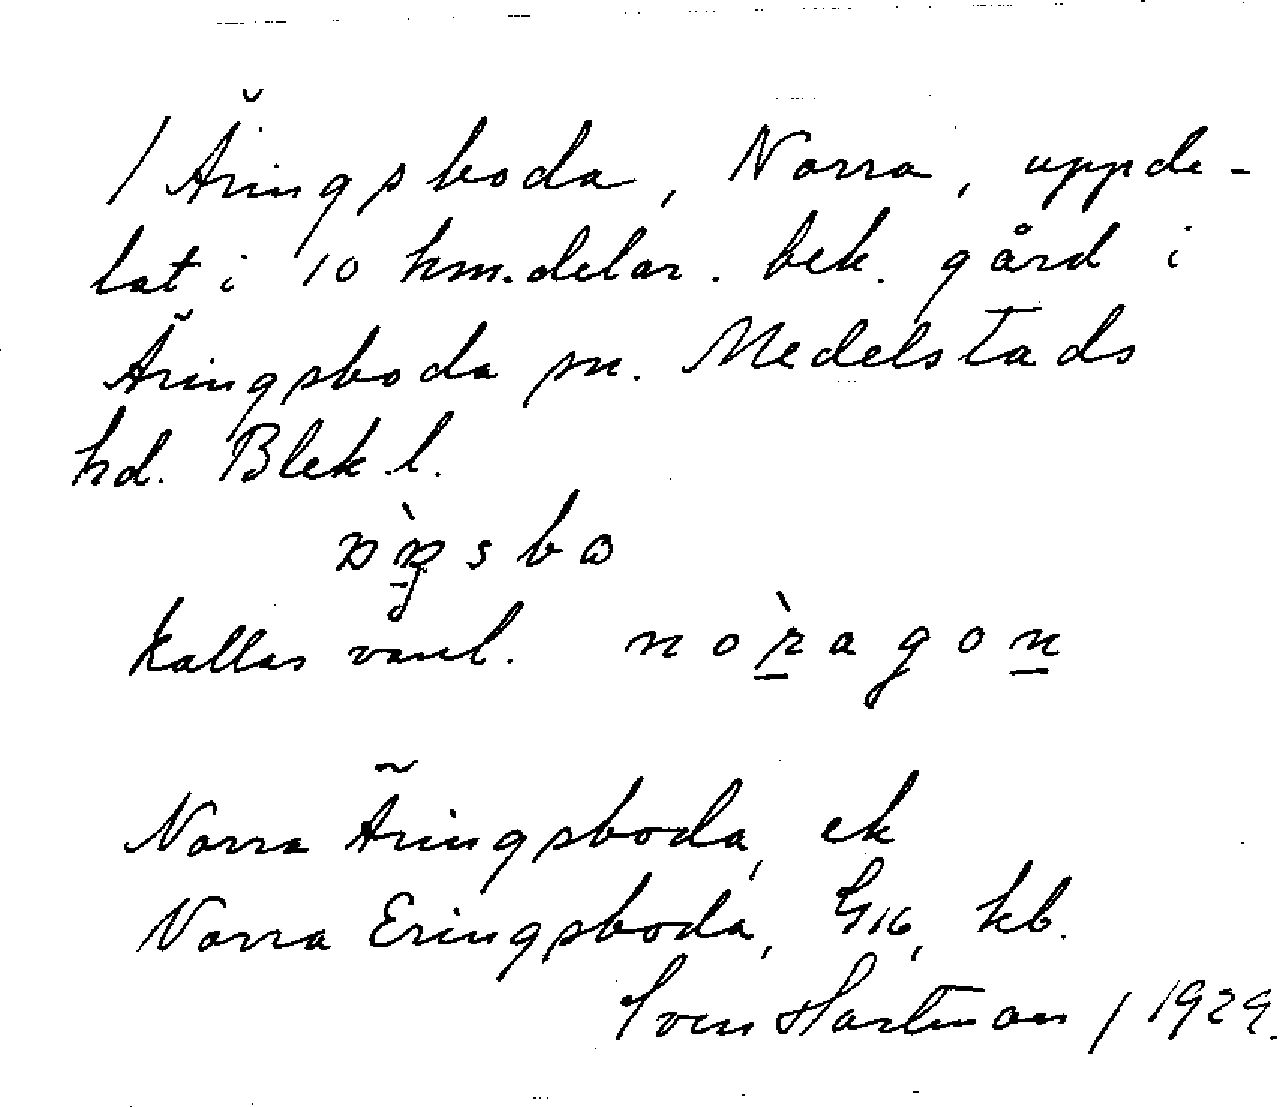 / Äringsboda, Norra, uppde-
lat i 10 hm.delar. bek. gård i
Äringsboda sn. Medelstads
hd. Blek.l.
kallas vanl. noragon
Norra Äringsboda, ek
Norra Eringsboda, G16, kb.
Sven Hartman / 1929.